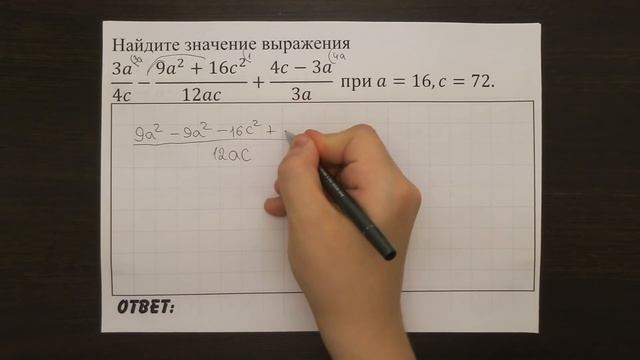 Найдите значение выражения
3a/4c (3a − 9a² + 16c²/12ac (1 + 4c − 3a/3a (4a при a = 16, c = 72.
9a² − 9a² − 16c² +
12ac
ОТВЕТ: